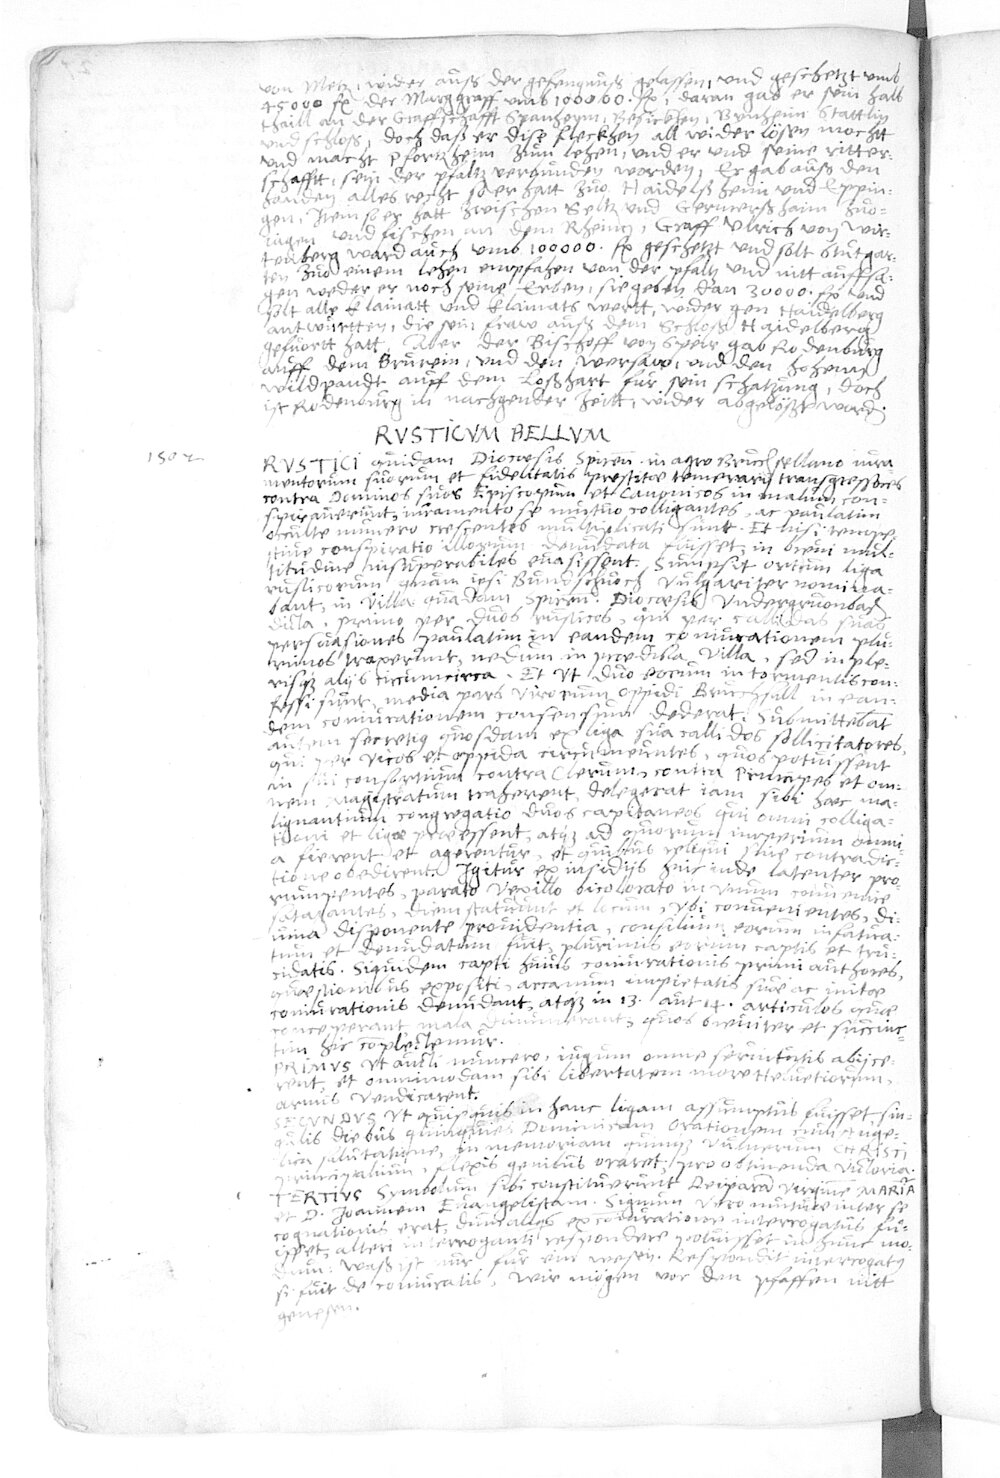 von Metz, wider auß der gefengnuß gelassen, und geschetzt umb
45000 fl. der Marggraff umb 100000. fl, daran gab er sein halb
thaill an der Graffschafft Spanheym, Besickhen, Bynheim Stattlin
und schloß, doch daß er dise fleckhen all wider lösen mocht
und macht Pfortzheim zum lehen, und er und seine ritter-
schafftt, sein der pfaltz verbunden worden, Er gab auß den
handen alles recht so er hatt zuo Haidelßheim und Eppin-
gen, Item so er hatt zwischen Seltz und Germerßhaim zuo
iagen und fischen an dem Rheim, Graff Ulrich von Wir-
tenberg ward auch umb 100000. fl geschetzt und solt Stutgar-
ten zuo einem lehen empfahen von der pfaltz und nitt auffsa-
gen weder er noch seine Erben, sie geben dan 30000. fl und
solt alle klainatt und klainats wertt, wider gen Haidelberg
antwurtten, die sein fraw auß dem Schloß Haidelberg
gefuortt hatt, Aber der Bischoff von Speir gab Rodenburg
auff dem Brurein, und den Wersaw, und den hohenas
wildpandt auff dem Loßhart für sein schatzung, doch
ist Rodenburg in nachgender Zeitt, wider abgelößt word.
RVSTICVM BELLVM
1502
RVSTICI quidam Diocœsis Spiren. in agro Bruchsellano iura
mentorum suorum et fidelitatis prestitæ temerarij transgressores
contra Dominos suos Episcopum et Canonicos in malum con-
spirauerunt, iuramento se mutuo colligantes, ac paulatim
occulte numero crescentes multiplicati sunt. Et nisi tempe-
stiue conspiratio illorum denudata fuisset, in breui mul-
titudine insuperabiles euasissent. Sumpsit ortum liga
rusticorum quam ipsi Bundschuoch vulgariter nomina-
bant, in villa quadam Spiren. Diocœsis Undergruonbach
dicta. primo per duos rusticos, qui per callidas suas
persuasiones paulatim in eandem coniurationem plu-
rimos traxerunt, nedum in prædicta villa, sed in ple-
risque alijs circumcirca. Et ut duo eorum in tormentis con-
fessi sunt, media pars virorum oppidi Bruchsall in ean-
dem coniurationem consensum dederat. Submittebat
autem secretis quosdam ex liga sua callidos sollicitatores,
qui per vicos et oppida circumeuntes, quos potuissent
in sui consortium contra Clerum, contra Principes et om-
nem Magistratum traherent, delegerat iam sibi hæc ma-
lignantium congregatio duos capitaneos qui omni colliga-
tioni et ligæ præessent, atque ad quorum imperium omni-
a fierent et agerentur, et quibus reliqui sine contradic-
tione obedirent. Igitur ex insidijs hinc inde latenter pro-
rumpentes, parato vexillo bicolorato in unum conuenire
satagantes, diem statuunt et locum, ubi conuenientes, di-
uina disponente prouidentia, consilium eorum infatua-
tum et denudatum fuit, plurimis eorum captis et tru-
cidatis. Siquidem capti huius coniurationis primi authores,
quæstionibus expositi, arcanum impietatis suæ ac initæ
coniurationis denudant, atque in 13. aut 14. articulos quæ
conceperant mala dinumerant, quos breuiter et succinc-
tim hic complectemur.
PRIMVS ut aucti numero, iugum omne seruitutis abijce-
rent, et omnimodam sibi libertatem more Heluetiorum,
armis vendicarent.
SECVNDVS Ut quisquis in hanc ligam assumptus fuisset, sin-
gulis diebus quinquies Dominicam Orationem cum Ange-
lica salutatione, in memoriam quinque vulnerum CHRISTI
principalium, flexis genibus oraret, pro obtinenda victoria.
TERTIVS Symbolum sibi constituerunt Deiparam virginem MARIA
et D. Joannem Euangelistam. Signum vero mutuæ inter se
cognationis erat, dum alius ex coniuratione interrogatus fu-
isset, alteri interroganti respondere potuisset in hunc mo-
dum: waß ist nur für ein wesen. Respondit interrogatus
si fuit de coniuratis, wir mögen vor den pfaffen nitt
genesen.